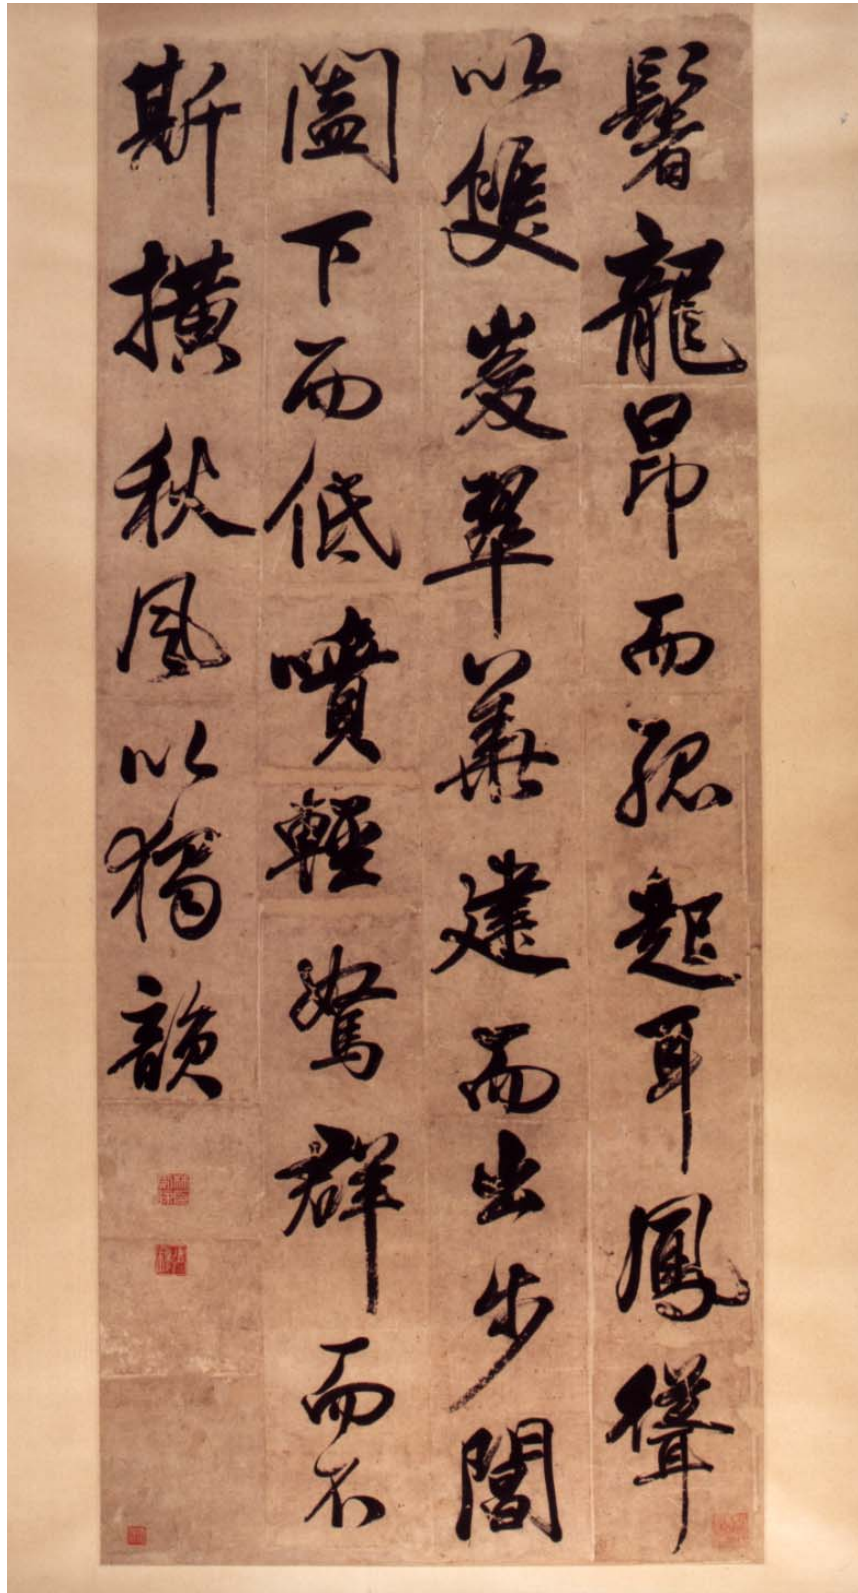 鬐龍昂而孤起耳鳳聳
以雙峻翠華建而出步閶
闔下而低噴輕駑群而不
斯撗秋風以獨韻